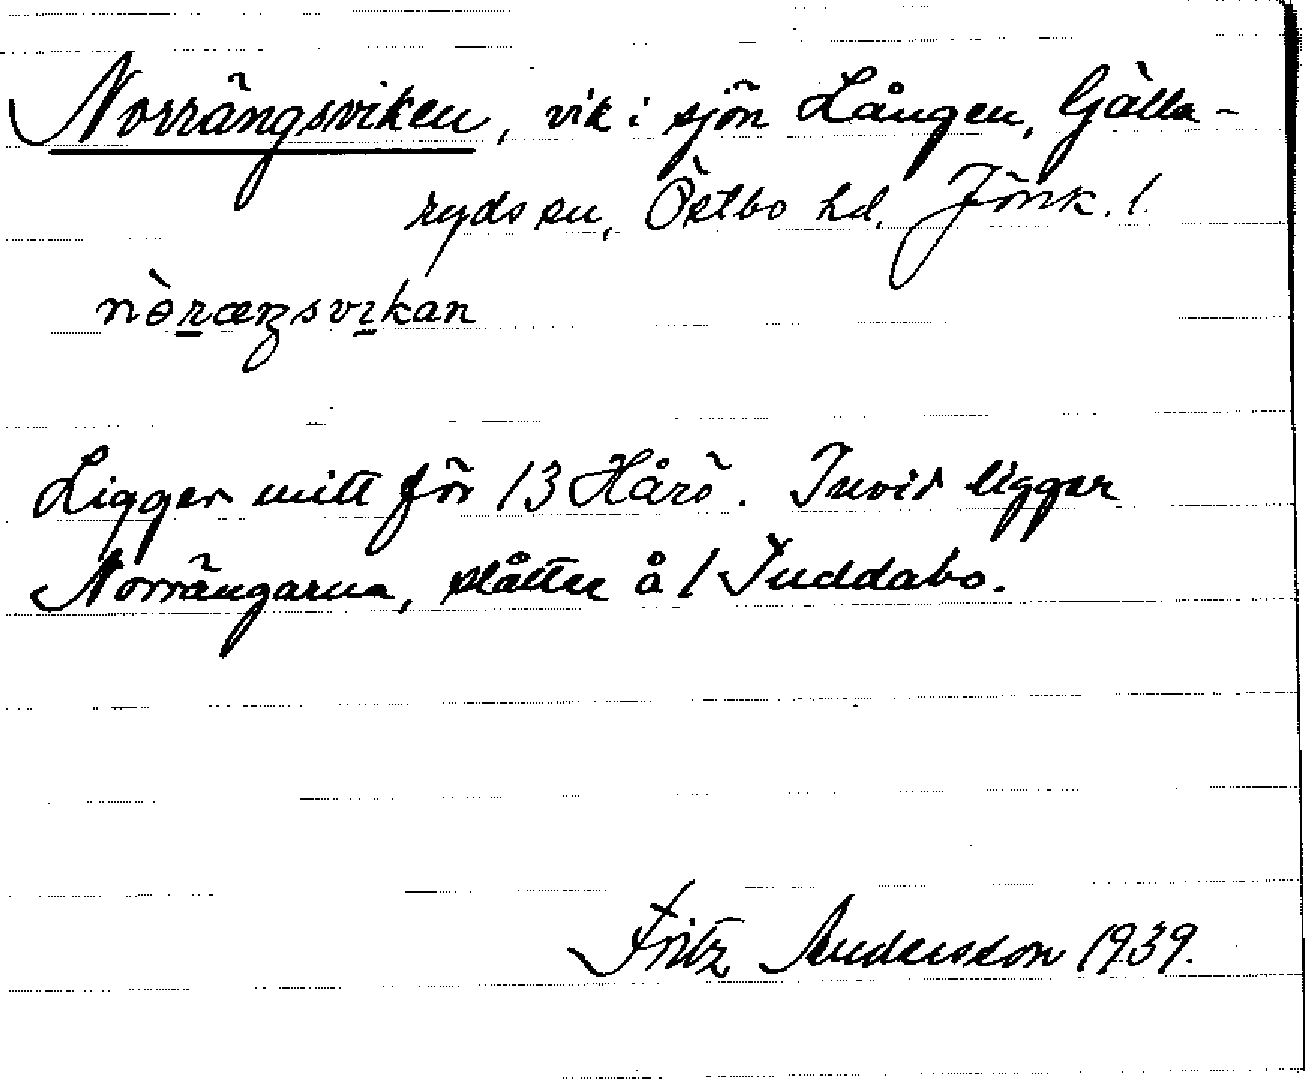 Norrängsviken, vik i sjön Lången, Gälla-
ryds sn, Östbo hd. Jönk. l.
nòræŋsvikan
Ligger mitt för 13 Hårö. Invid ligger
Norrängarna, slåtter å 1 Juddabo.
Fritz Andersson 1939.